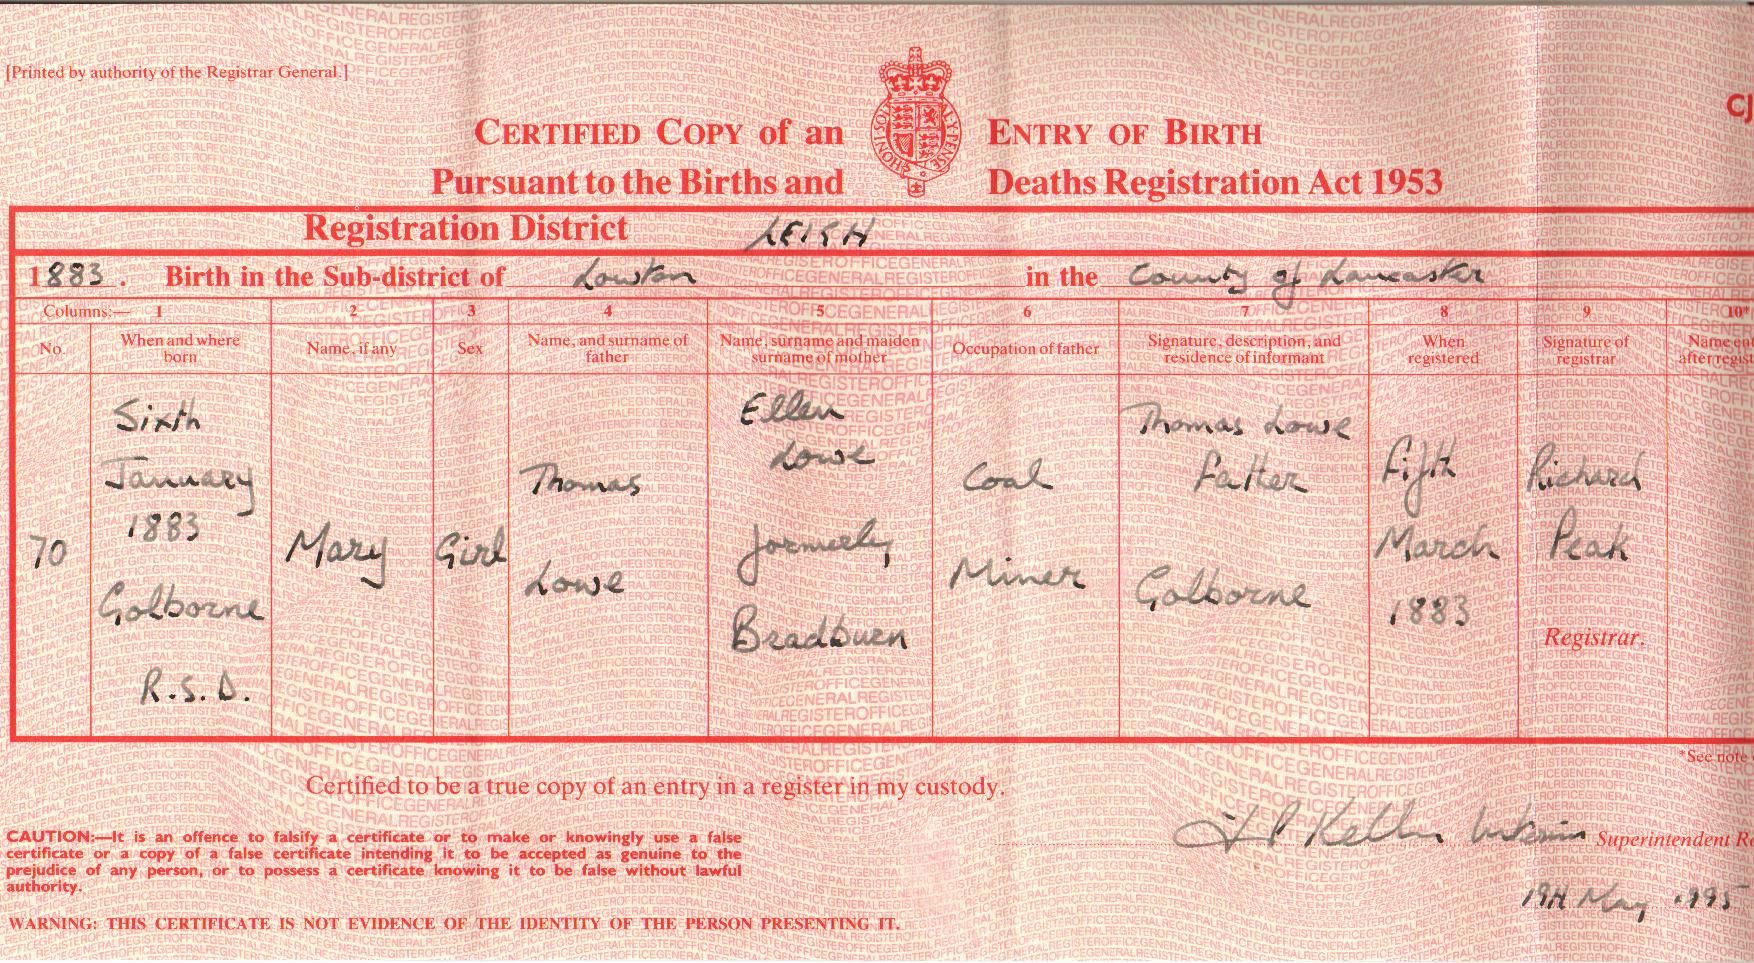 [Printed by authority of the Registrar General.]
CJ
CERTIFIED COPY of an ENTRY OF BIRTH
Pursuant to the Births and Deaths Registration Act 1953
Registration District LEIGH
1883. Birth in the Sub-district of Lowton in the County of Lancaster
Columns:— 1 2 3 4 5 6 7 8 9 10*
No. When and where born Name, if any Sex Name, and surname of father Name, surname and maiden surname of mother Occupation of father Signature, description, and residence of informant When registered Signature of registrar Name
70
Sixth
January
1883
Golborne
R.S.D.
Mary
Girl
Thomas
Lowe
Ellen
Lowe
formerly
Bradburn
Coal
Miner
Thomas Lowe
Father
Golborne
Fifth
March
1883
Richard
Peak
Registrar.
*See note
Certified to be a true copy of an entry in a register in my custody.
CAUTION:—It is an offence to falsify a certificate or to make or knowingly use a false
certificate or a copy of a false certificate intending it to be accepted as genuine to the
prejudice of any person, or to possess a certificate knowing it to be false without lawful
authority.
Interim Superintendent
19th May 1995
WARNING: THIS CERTIFICATE IS NOT EVIDENCE OF THE IDENTITY OF THE PERSON PRESENTING IT.